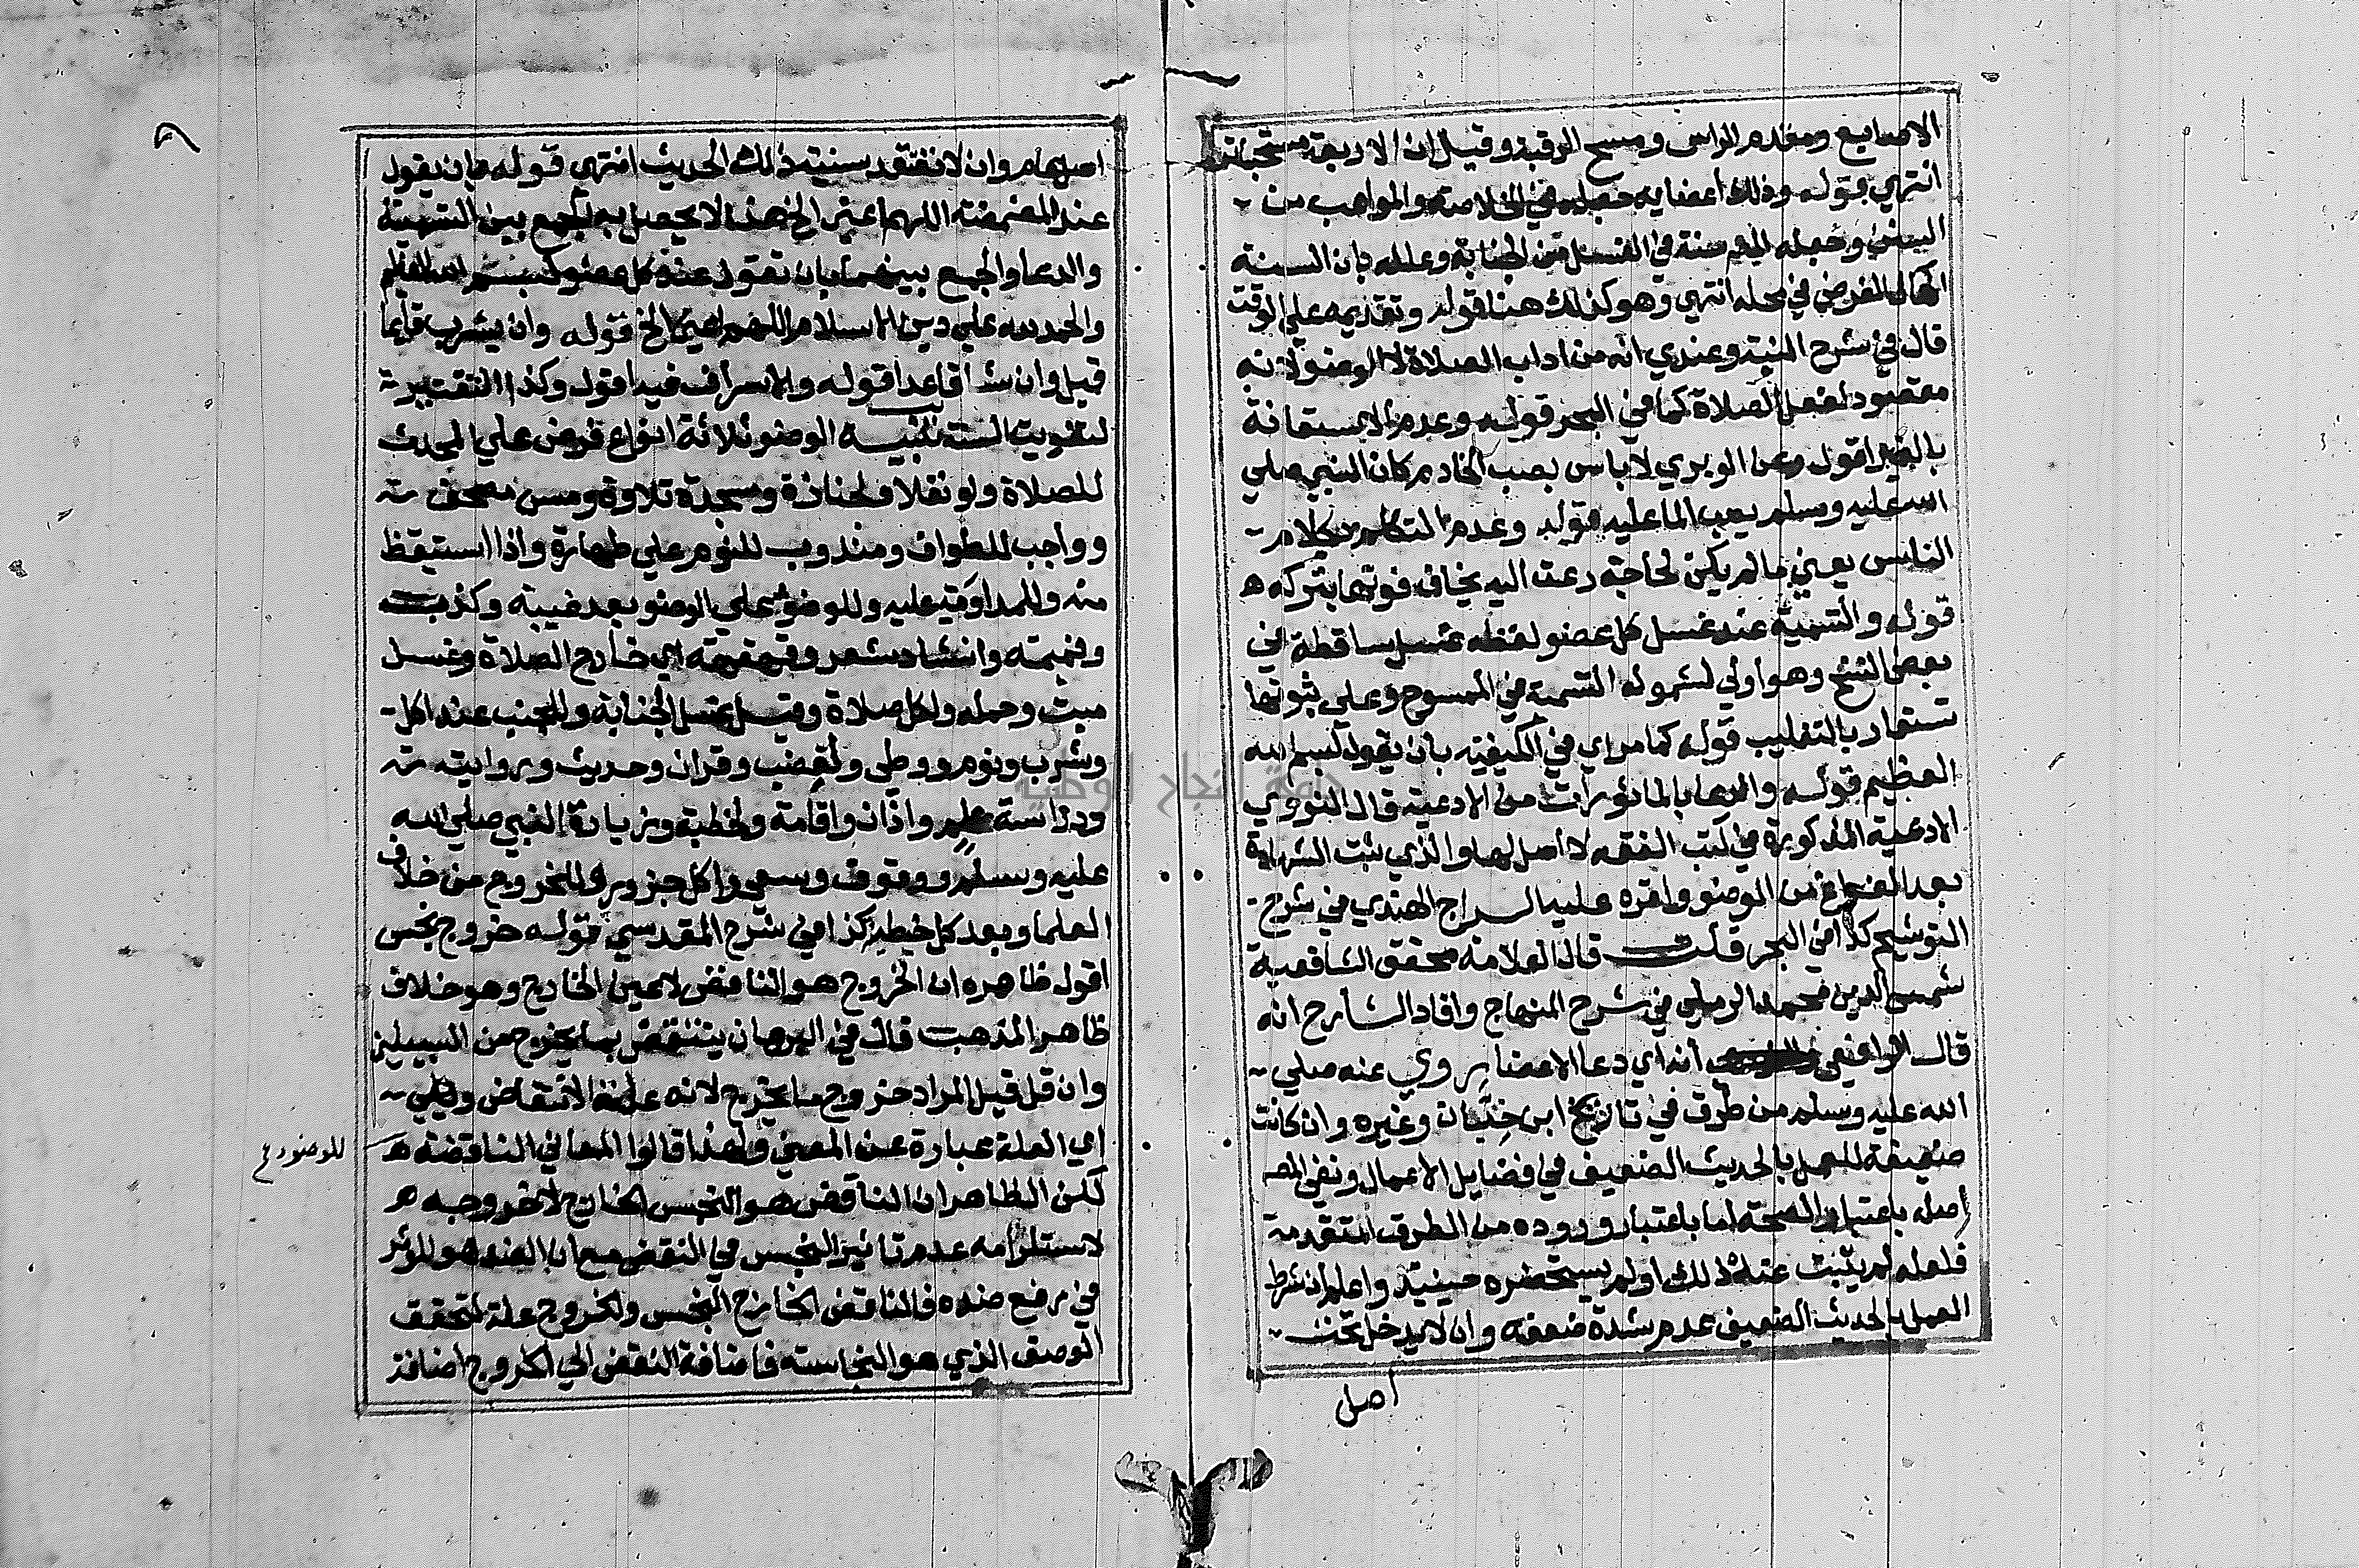 الاصابع ومقدم الراس ومسح الرقبة وقيل ان الاربعة مستحبات
انتهي قوله وذلك اعضايه جعله في الخلاصة والمواهب من
السنن وجعله المؤ سنة في الغسل من الجنابة وعلله بان السنة
اكمال الفرض في محله انتهي وهو كذلك هنا قوله وتقديمه علي الوقت
قال في شرح المنية وعندي انه من اداب الصلاة لا الوضو لانه
مقصود لفعل الصلاة كما في البحر قوله وعدم الاستعانة
بالغير اقول وعن الوبري لا باس بصب الخادم كان النبي صلي
الله عليه وسلم يصب الما عليه قوله وعدم التكلم بكلام
الناس يعني ما لم يكن لحاجة دعت اليه يخاف فوتها بتركه ه
قوله والتسمية عند غسل كل عضو لفظه غسل ساقطة في
بعض النسخ وهو اولي لشموله التسمية في الممسوح وعلي ثبوتها
تستفاد بالتغليب قوله كما مر اي في الكيفية بان يقول بسم الله
العظيم قوله والدعا بالماثورات من الادعية قال النووي
الادعية المذكورة في كتب الفقه لا اصل لها والذي ثبت الشهادة
بعد الفراغ من الوضو واقره عليه السراج الهندي في شرح
التوشيح كذا في البحر قلت قال العلامة محقق الشافعية
شمس الدين محمد الرملي في شرح المنهاج وافاد الشارح انه
قال الرافعي انه اي دعا الاعضا روي عنه صلي
الله عليه وسلم من طرق في تاريخ ابن حبان وغيره وان كانت
ضعيفة للعمل بالحديث الضعيف في فضايل الاعمال ونفي المص
اصله باعتبار الصحة اما باعتبار وروده من الطرق المتقدمة
فلعله لم يثبت عنده ذلك او لم يستحضره حينيذ واعلم ان شرط
العمل بالحديث الضعيف عدم شدة ضعفه وان لا يدخل تحت
اصل
٩
اصل عام وان لا نعتقد سنية ذلك الحديث انتهي قوله فان يقول
عند المضمضة اللهم اعني الخ هذا لا يحصل به الجمع بين التسمية
والدعا والجمع بينهما بان تقول عند كل عضو بسم الله العظيم
والحمد لله علي دين الاسلام اللهم اعني الخ قوله وان يشرب قايما
قيل وان شا قاعدا قوله والاسراف فيه اقول وكذا التقتير
لتفويت السنة تنبيه الوضو ثلاثة انواع فرض علي المحدث
للصلاة ولو نفلا ولجنازة وسجدة تلاوة ومس مصحف
وواجب للطواف ومندوب للنوم علي طهارة واذا استيقظ
منه وللمداومة عليه وللوضو علي الوضو بعد غيبة وكذب
ونميمة وانشاد شعر وقهقهة اي خارج الصلاة وغسل
ميت وحمله ولكل صلاة وقبل غسل الجنابة وللجنب عند اكل
وشرب ونوم ووطي ولغضب وقران وحديث وروايته
ودراسة علم واذان واقامة ولخطبة وزيارة النبي صلي الله
عليه وسلم ووقوف وسعي واكل جزور وللخروج من خلاف
العلما وبعد كل خطيئة كذا في شرح المقدسي قوله خروج نجس
اقول ظاهره ان الخروج هو الناقض لا عين الخارج وهو خلاف
ظاهر المذهب قال في البرهان ينتقض بما يخرج من السبيلين
وان قل قيل المراد خروج ما يخرج لانه علة الانتقاض
اي العلة عبارة عن المعني ولهذا قالوا المعاني الناقضة ه
للوضو
لكن الظاهر ان الناقض هو النجس الخارج لا خروجه ه
لاستلزامه عدم تاثير النجس في النقض مع ان الضد هو الموثر
في رفع ضده فالناقض الخارج النجس والخروج علة لتحقق
الوصف الذي هو النجاسة فاضافة النقض الي الخروج اضافة